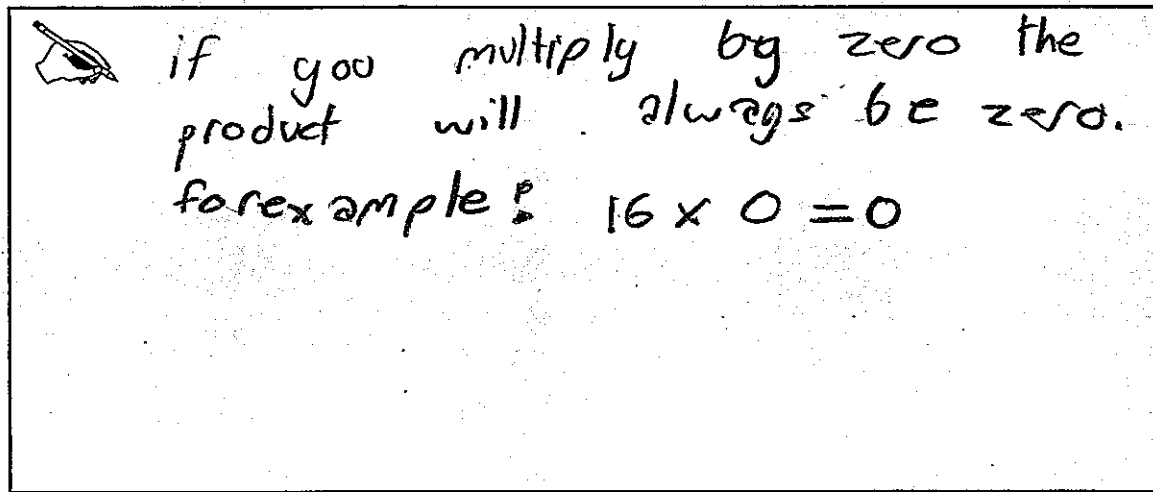 if you multiply by zero the
product will always be zero.
forexample: 16 x 0 = 0